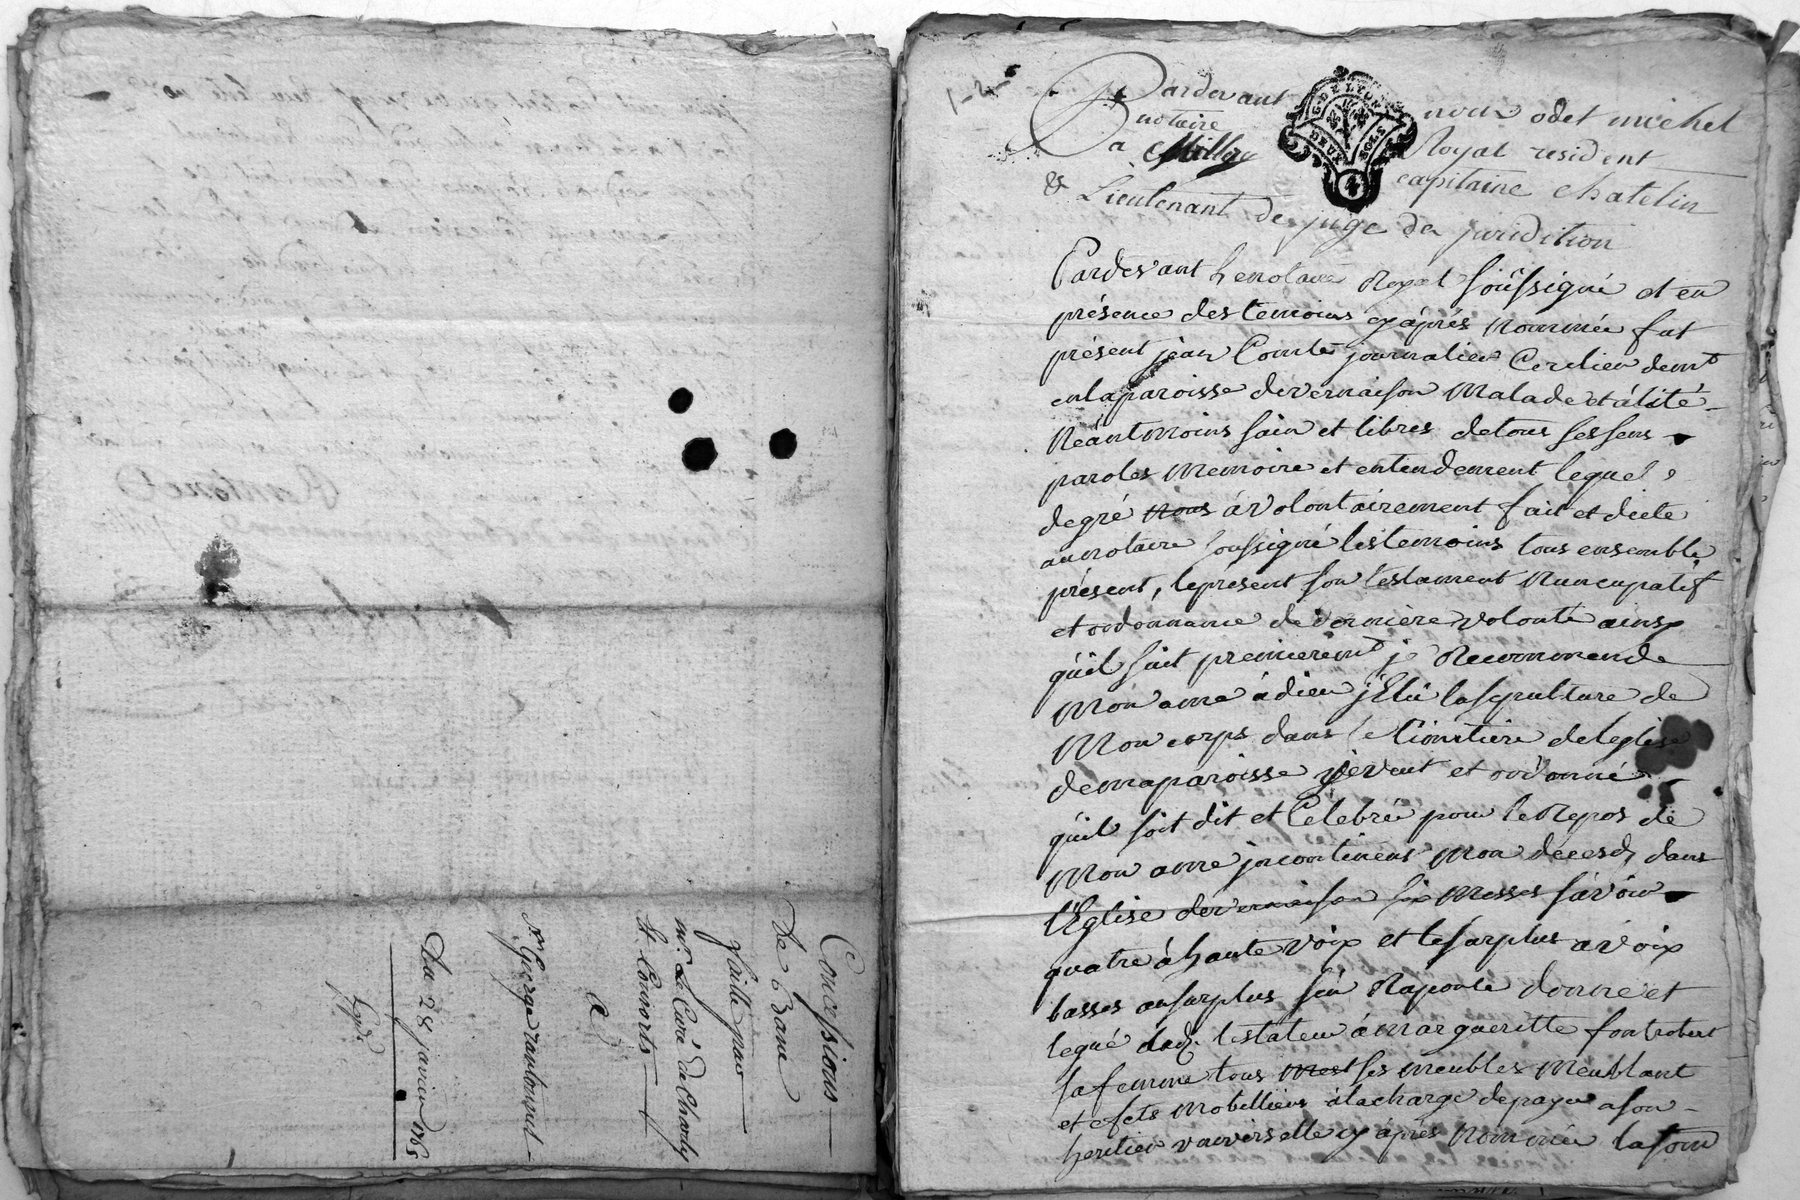 Concessions
De Banc
faitte par
mr. Le Curé de Charly
et Consorts
a
sr. George rantonnet
Du 28 janvier 1765
Expé
G. DE LYON
DEUX SOLS
4
Pardevant nous odet michel
notaire Royal resident
a Millery capitaine chatelin
& Lieutenant de juge de juridition
Pardevant Le notaire Royal soussigné et en
présence des temoins cy après nommée fut
présent jean Comte journalier Cordier demt
en la paroisse de vernaison Malade et álité
Néantmoins sain et libres de tous ses sens
paroles Memoire et entendement lequel
de gré nous á volontairement fait et dicté
au notaire soussigné les temoins tous ensemble
présent, le present son testament Nuncupatif
et ordonnance de derniere volonté ainsy
qu'il suit premieremt je Recommende
Mon ame á dieu j'Elu la sepulture de
Mon corps dans le Cimitiere de leglise
de ma paroisse je veut et ordonne
quil soit dit et Celebré pour le Repos de
Mon ame incontinent Mon décesd, dans
l'Eglise de vernaison six Messes sávoir
quatre á haute voix et le surplus a voix
basses au surplus s'en Raporte donne et
legué led. testateur á margueritte fontrobert
sa femme tous mest ses meubles Meublant
et efets Mobilliers á la charge de payer a son
heritier universelle cy áprès Nommée la som